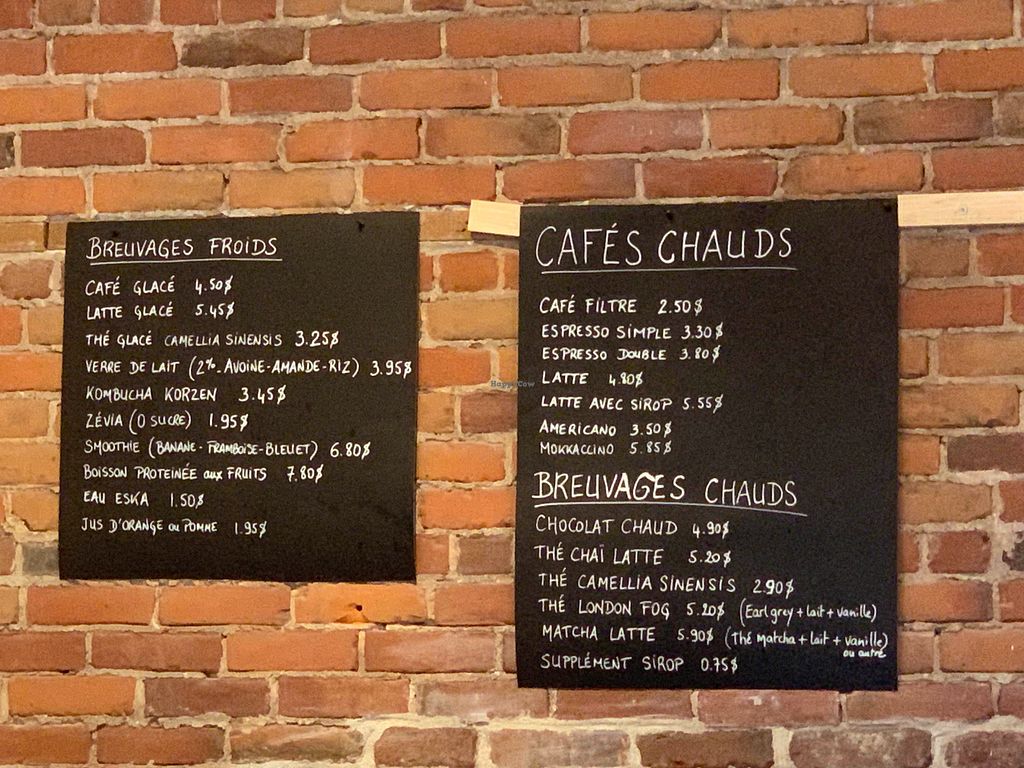 BREUVAGES FROIDS
CAFÉ GLACÉ 4.50$
LATTE GLACÉ 5.45$
THÉ GLACÉ CAMELLIA SINENSIS 3.25$
VERRE DE LAIT (2%-AVOINE-AMANDE-RIZ) 3.95$
KOMBUCHA KORZEN 3.45$
ZÉVIA (0 SUCRE) 1.95$
SMOOTHIE (BANANE-FRAMBOISE-BLEUET) 6.80$
BOISSON PROTEINÉE aux FRUITS 7.80$
EAU ESKA 1.50$
JUS D'ORANGE ou POMME 1.95$
CAFÉS CHAUDS
CAFÉ FILTRE 2.50$
ESPRESSO SIMPLE 3.30$
ESPRESSO DOUBLE 3.80$
LATTE 4.80$
LATTE AVEC SIROP 5.55$
AMERICANO 3.50$
MOKKACCINO 5.85$
BREUVAGES CHAUDS
CHOCOLAT CHAUD 4.90$
THÉ CHAÏ LATTE 5.20$
THÉ CAMELLIA SINENSIS 2.90$
THÉ LONDON FOG 5.20$ (Earl grey + lait + vanille)
MATCHA LATTE 5.90$ (Thé matcha + lait + vanille)
ou autre
SUPPLÉMENT SIROP 0.75$
HappyCow